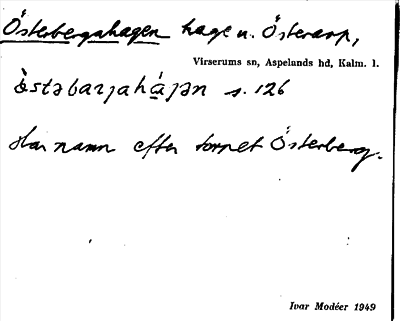 Österbergahagen hage u. Österarp,
Virserums sn, Aspelands hd, Kalm. l.
s. 126
Har namn efter torpet Österberg.
Ivar Modéer 1949